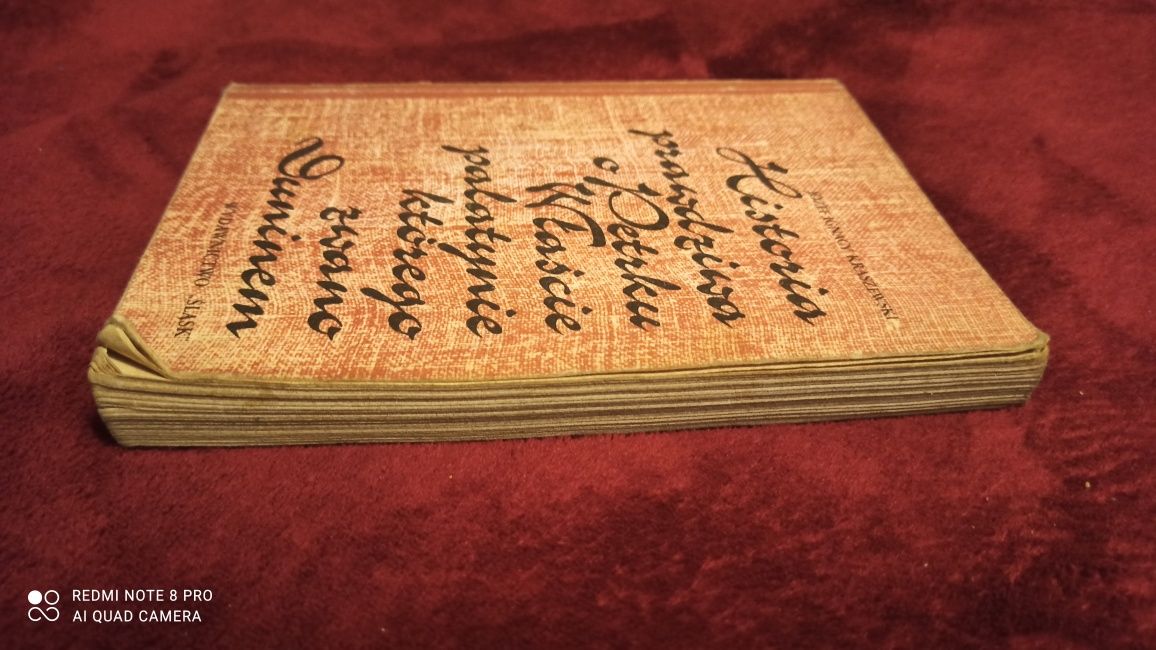 JÓZEF IGNACY KRASZEWSKI
Historia
prawdziwa
o Petrku
Właście
palatynie
którego
zwano
Duninem
WYDAWNICTWO ŚLĄSK
REDMI NOTE 8 PRO
AI QUAD CAMERA